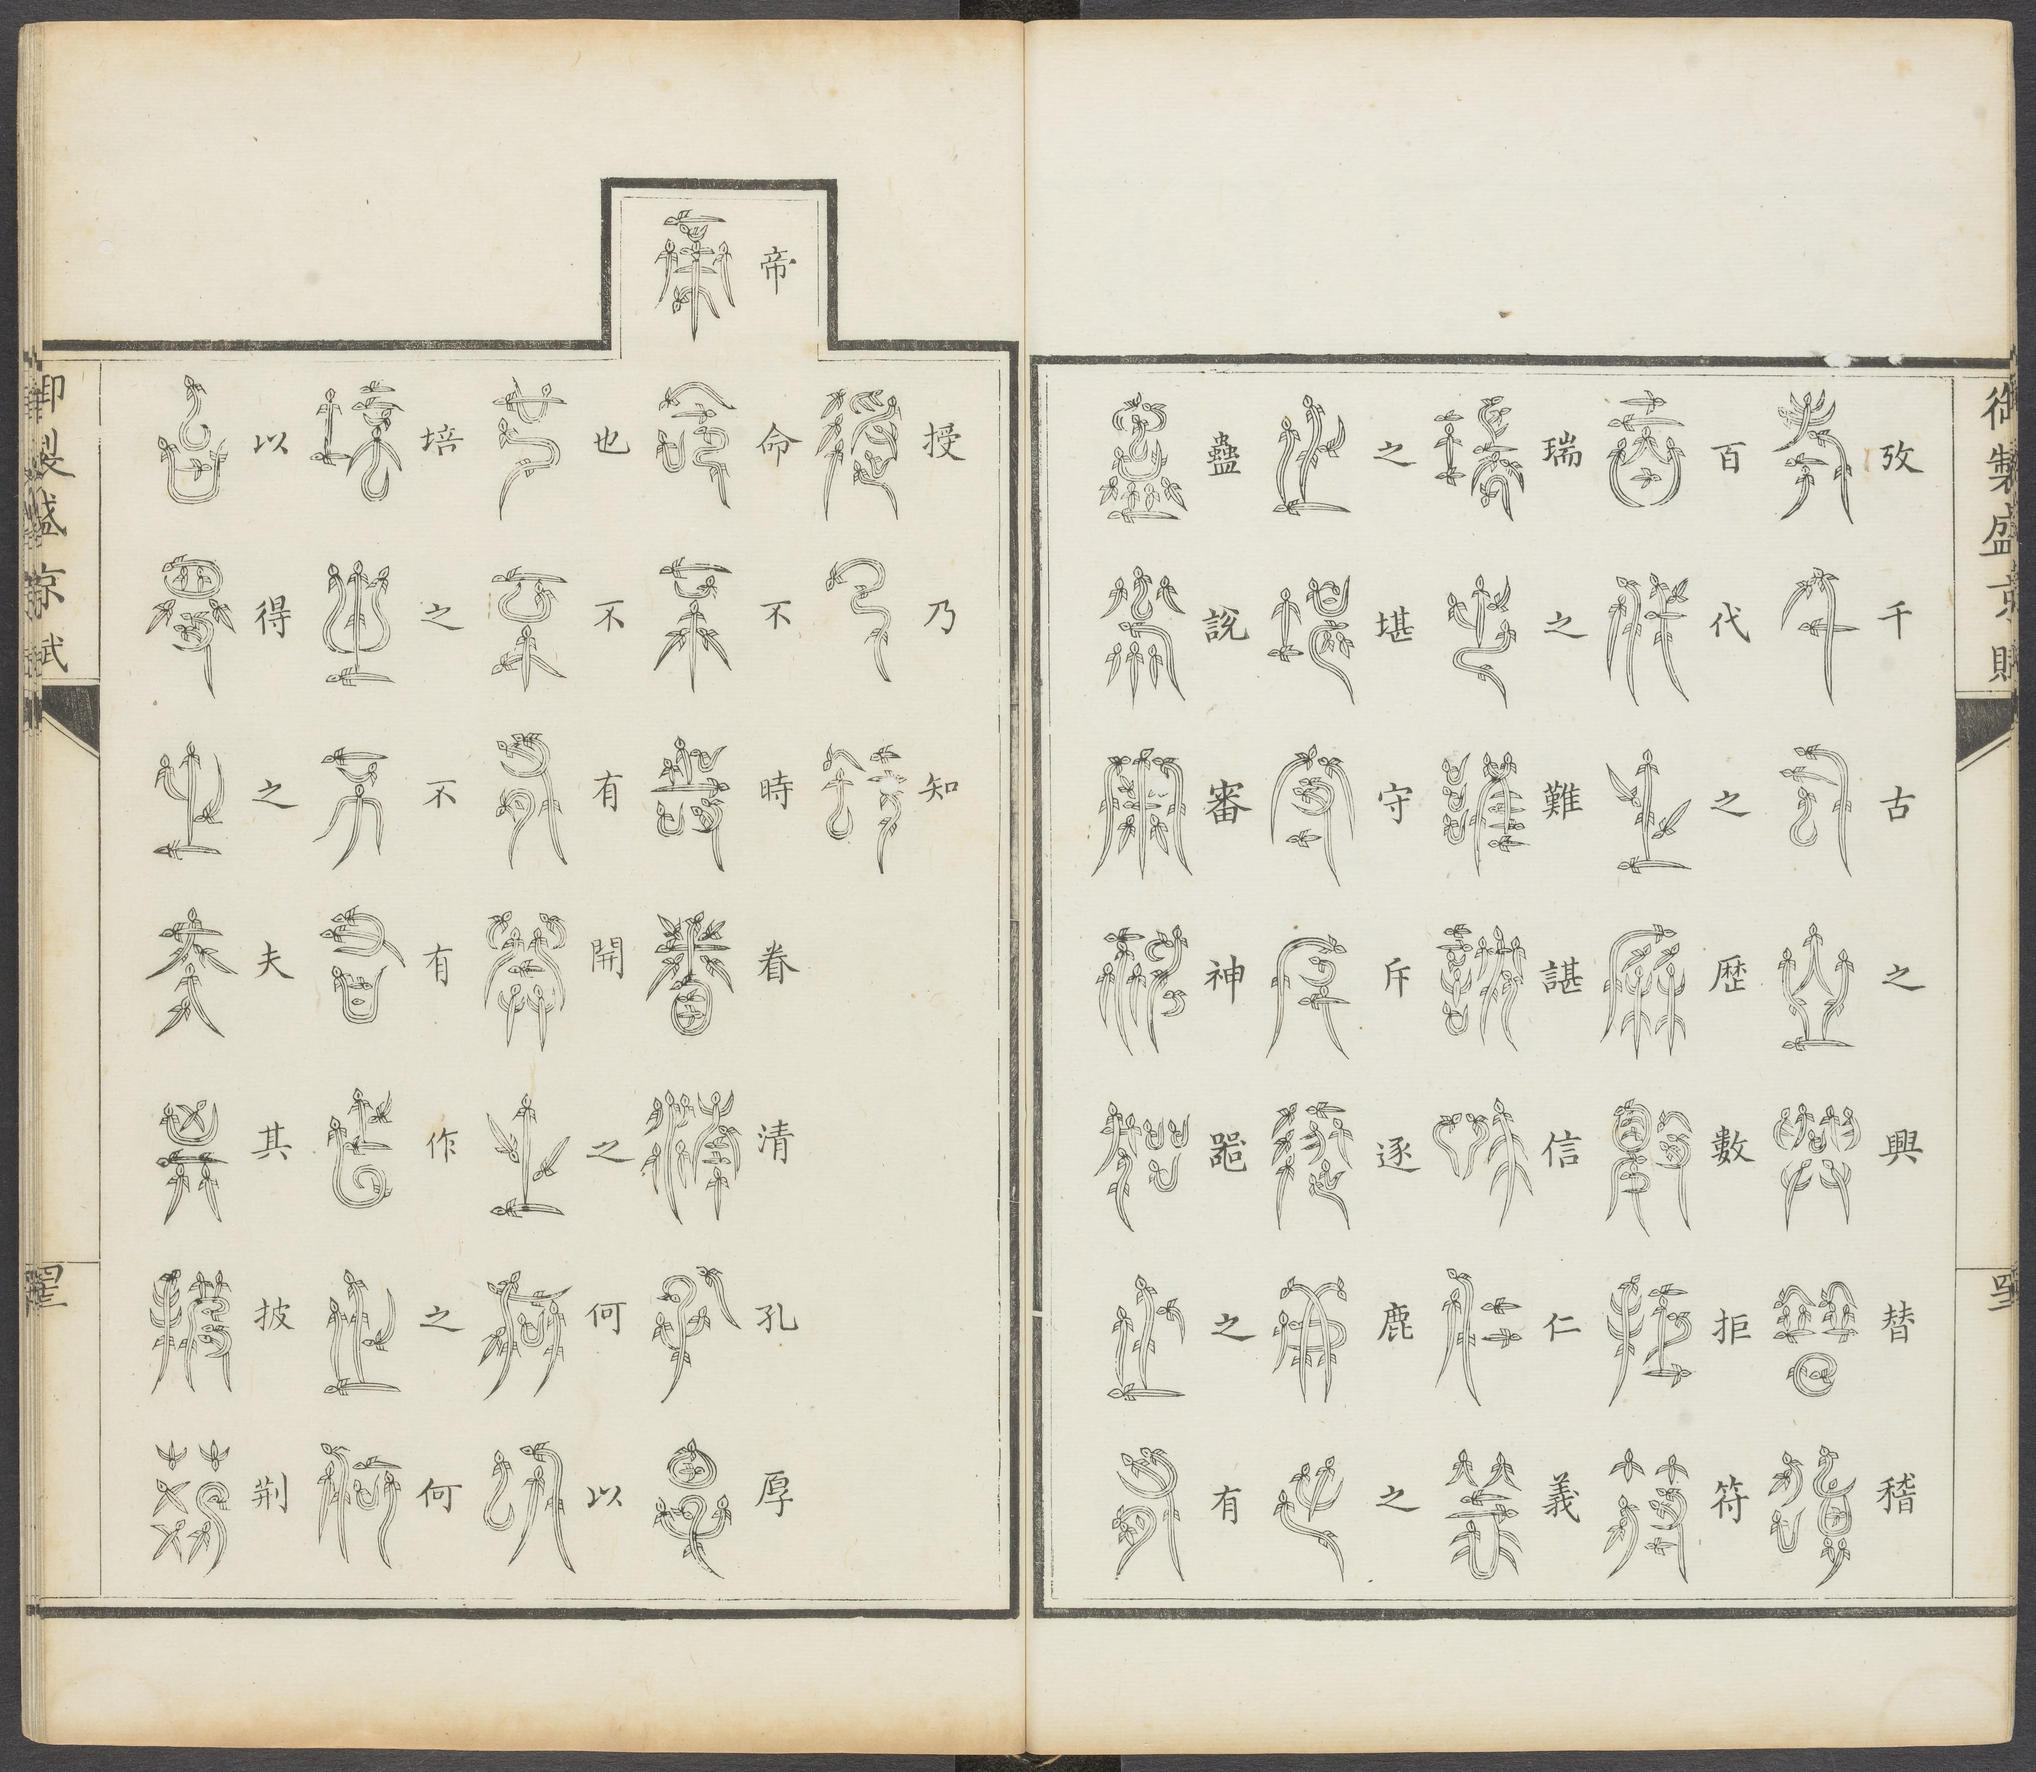 御製盛京賦
攷千古之興替稽
百代之歷數拒符
瑞之難諶信仁義
之堪守斥逐鹿之
蠱說審神噐之有
授乃知
帝命不時眷清孔厚
也不有開之何以
培之不有作之何
以得之夫其披荆
御製盛京賦